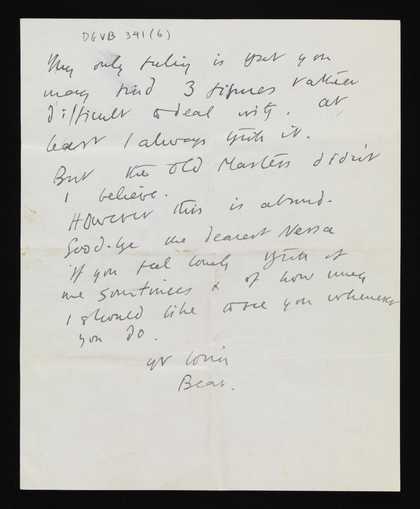 DGVB 341(6)
My only feeling is that you
may find 3 figures rather
difficult to deal with. at
least I always think it.
But the Old Masters didn't
I believe.
However this is absurd.
Good-bye dearest Nessa
if you feel lonely think of
me sometimes & of how much
I should like to see you whenever
you do.
yr loving
Bear.